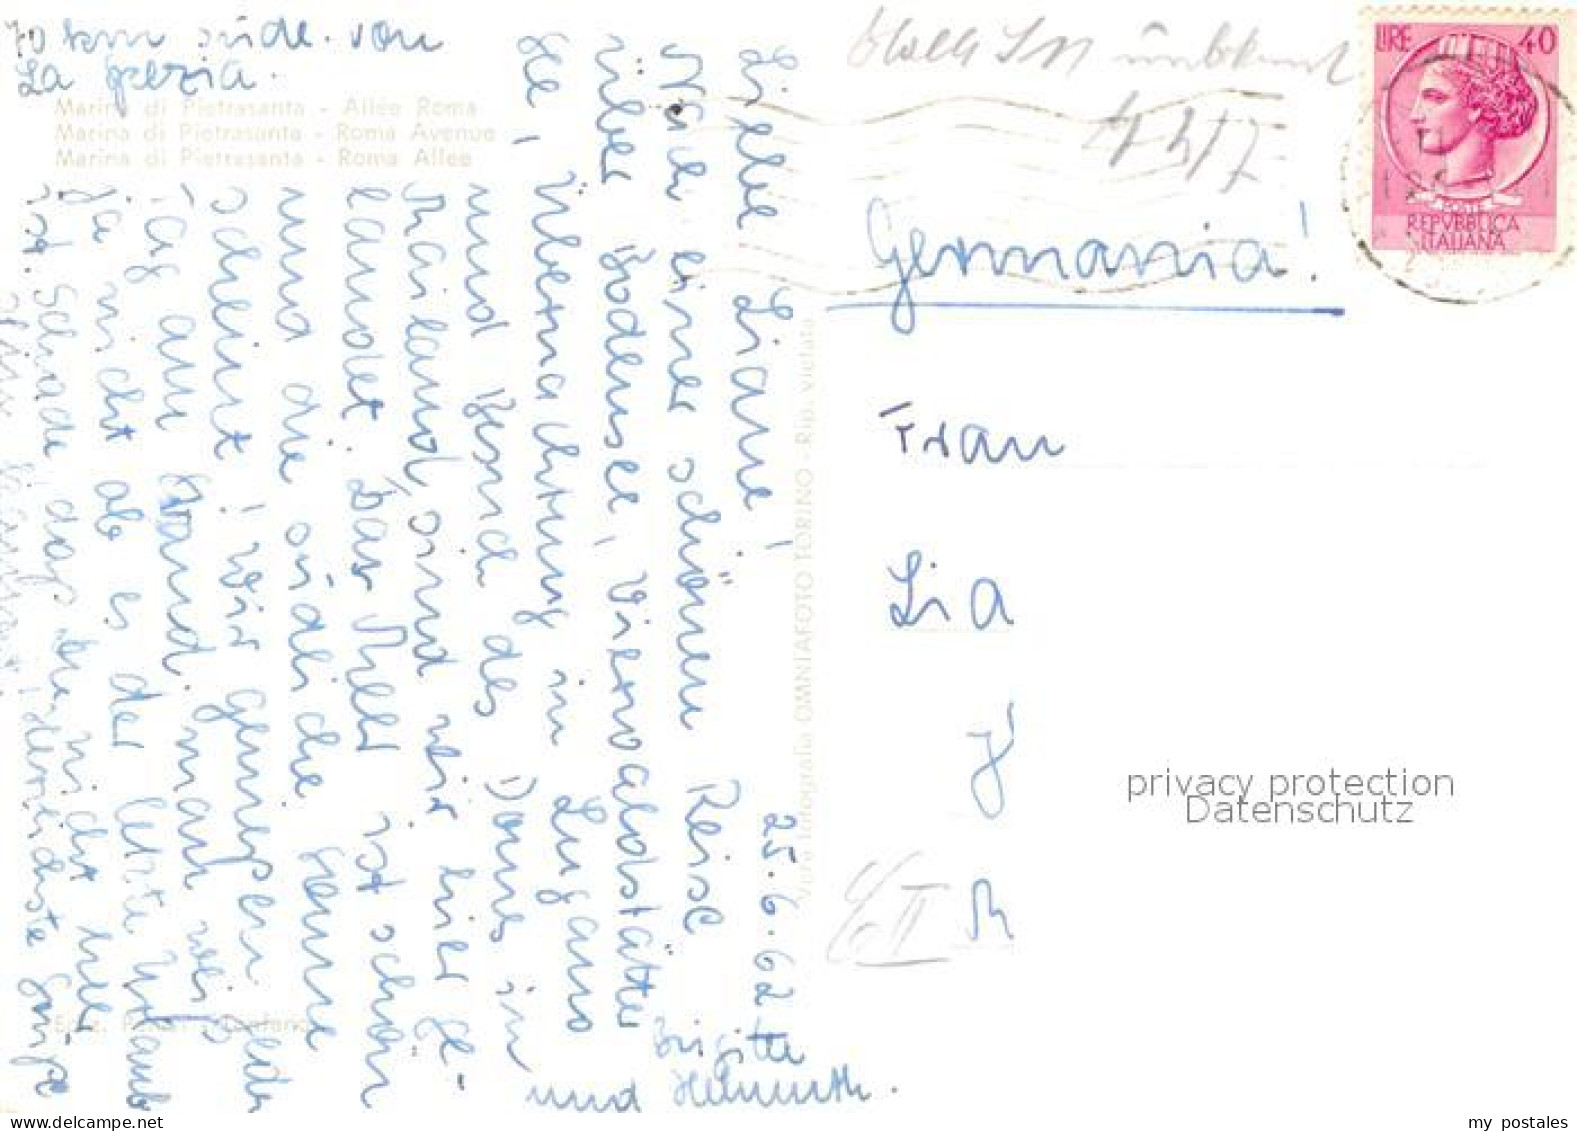 70 km südl. von
La Spezia.
Marina di Pietrasanta - Allée Roma
Marina di Pietrasanta - Roma Avenue
Marina di Pietrasanta - Roma Allee
25.6.62
Liebe Liane!
Nach einer schönen Reise
über Bodensee, Vierwaldstätter
See, Übernachtung in Lugano
und Besuch des Domes in
Mailand, sind wir hier ge-
landet. Das Meer ist schön
und die südliche Sonne
scheint! Wir genießen jeden
Tag am Strand. Man weiß
ja nicht ob es der letzte Urlaub
ist. Schade, daß du nicht
herzlichste Grüße
Brigitte
und Helmuth.
Vera fotografia OMNIAFOTO TORINO - Rip. vietata
LIRE 40
POSTE
REPVBBLICA
ITALIANA
unbekannt
Germania!
Frau
Lia
J
R
II
privacy protection
Datenschutz
my postales